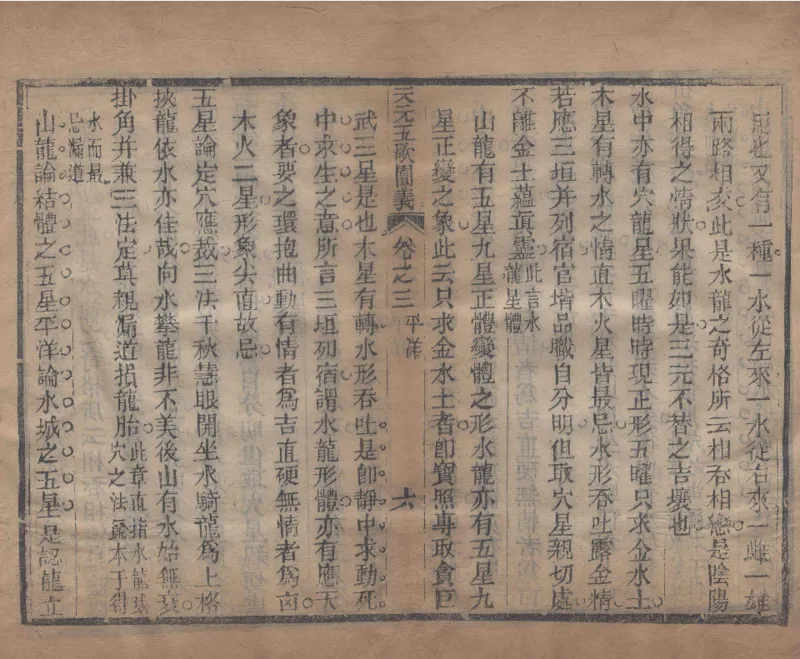 忌也又有一種一水從左來一水從右來一雌一雄
兩路相交此是水龍之奇格所云相吞相戀是陰陽
相得之情狀果能如是三元不替之吉壤也
水中亦有穴龍星五曜時時現正形五曜只求金水土
木星有轉水之情直木火星皆最忌水形吞吐露金精
若應三垣并列宿官堦品職自分明但取穴星親切處
不離金土蘊眞靈此言水龍星體
山龍有五星九星正體變體之形水龍亦有五星九
星正變之象此云只求金水土者卽寶照專取貪巨
天元五歌闡義 卷之三 平洋 六
武三星是也木星有轉水形吞吐是卽靜中求動死
中求生之意所言三垣列宿謂水龍形體亦有應天
象者要之環抱曲動有情者爲吉直硬無情者爲凶
木火二星形象尖直故忌
五星論定穴應裁三法千秋慧眼開坐水騎龍爲上格
挾龍依水亦佳哉向水攀龍非不美後山有水始無哀
掛角并兼三法定莫親漏道損龍胎此章直指水龍裁穴之法蓋本于得
水而最忌漏道
山龍論結體之五星平洋論水城之五星是認龍立